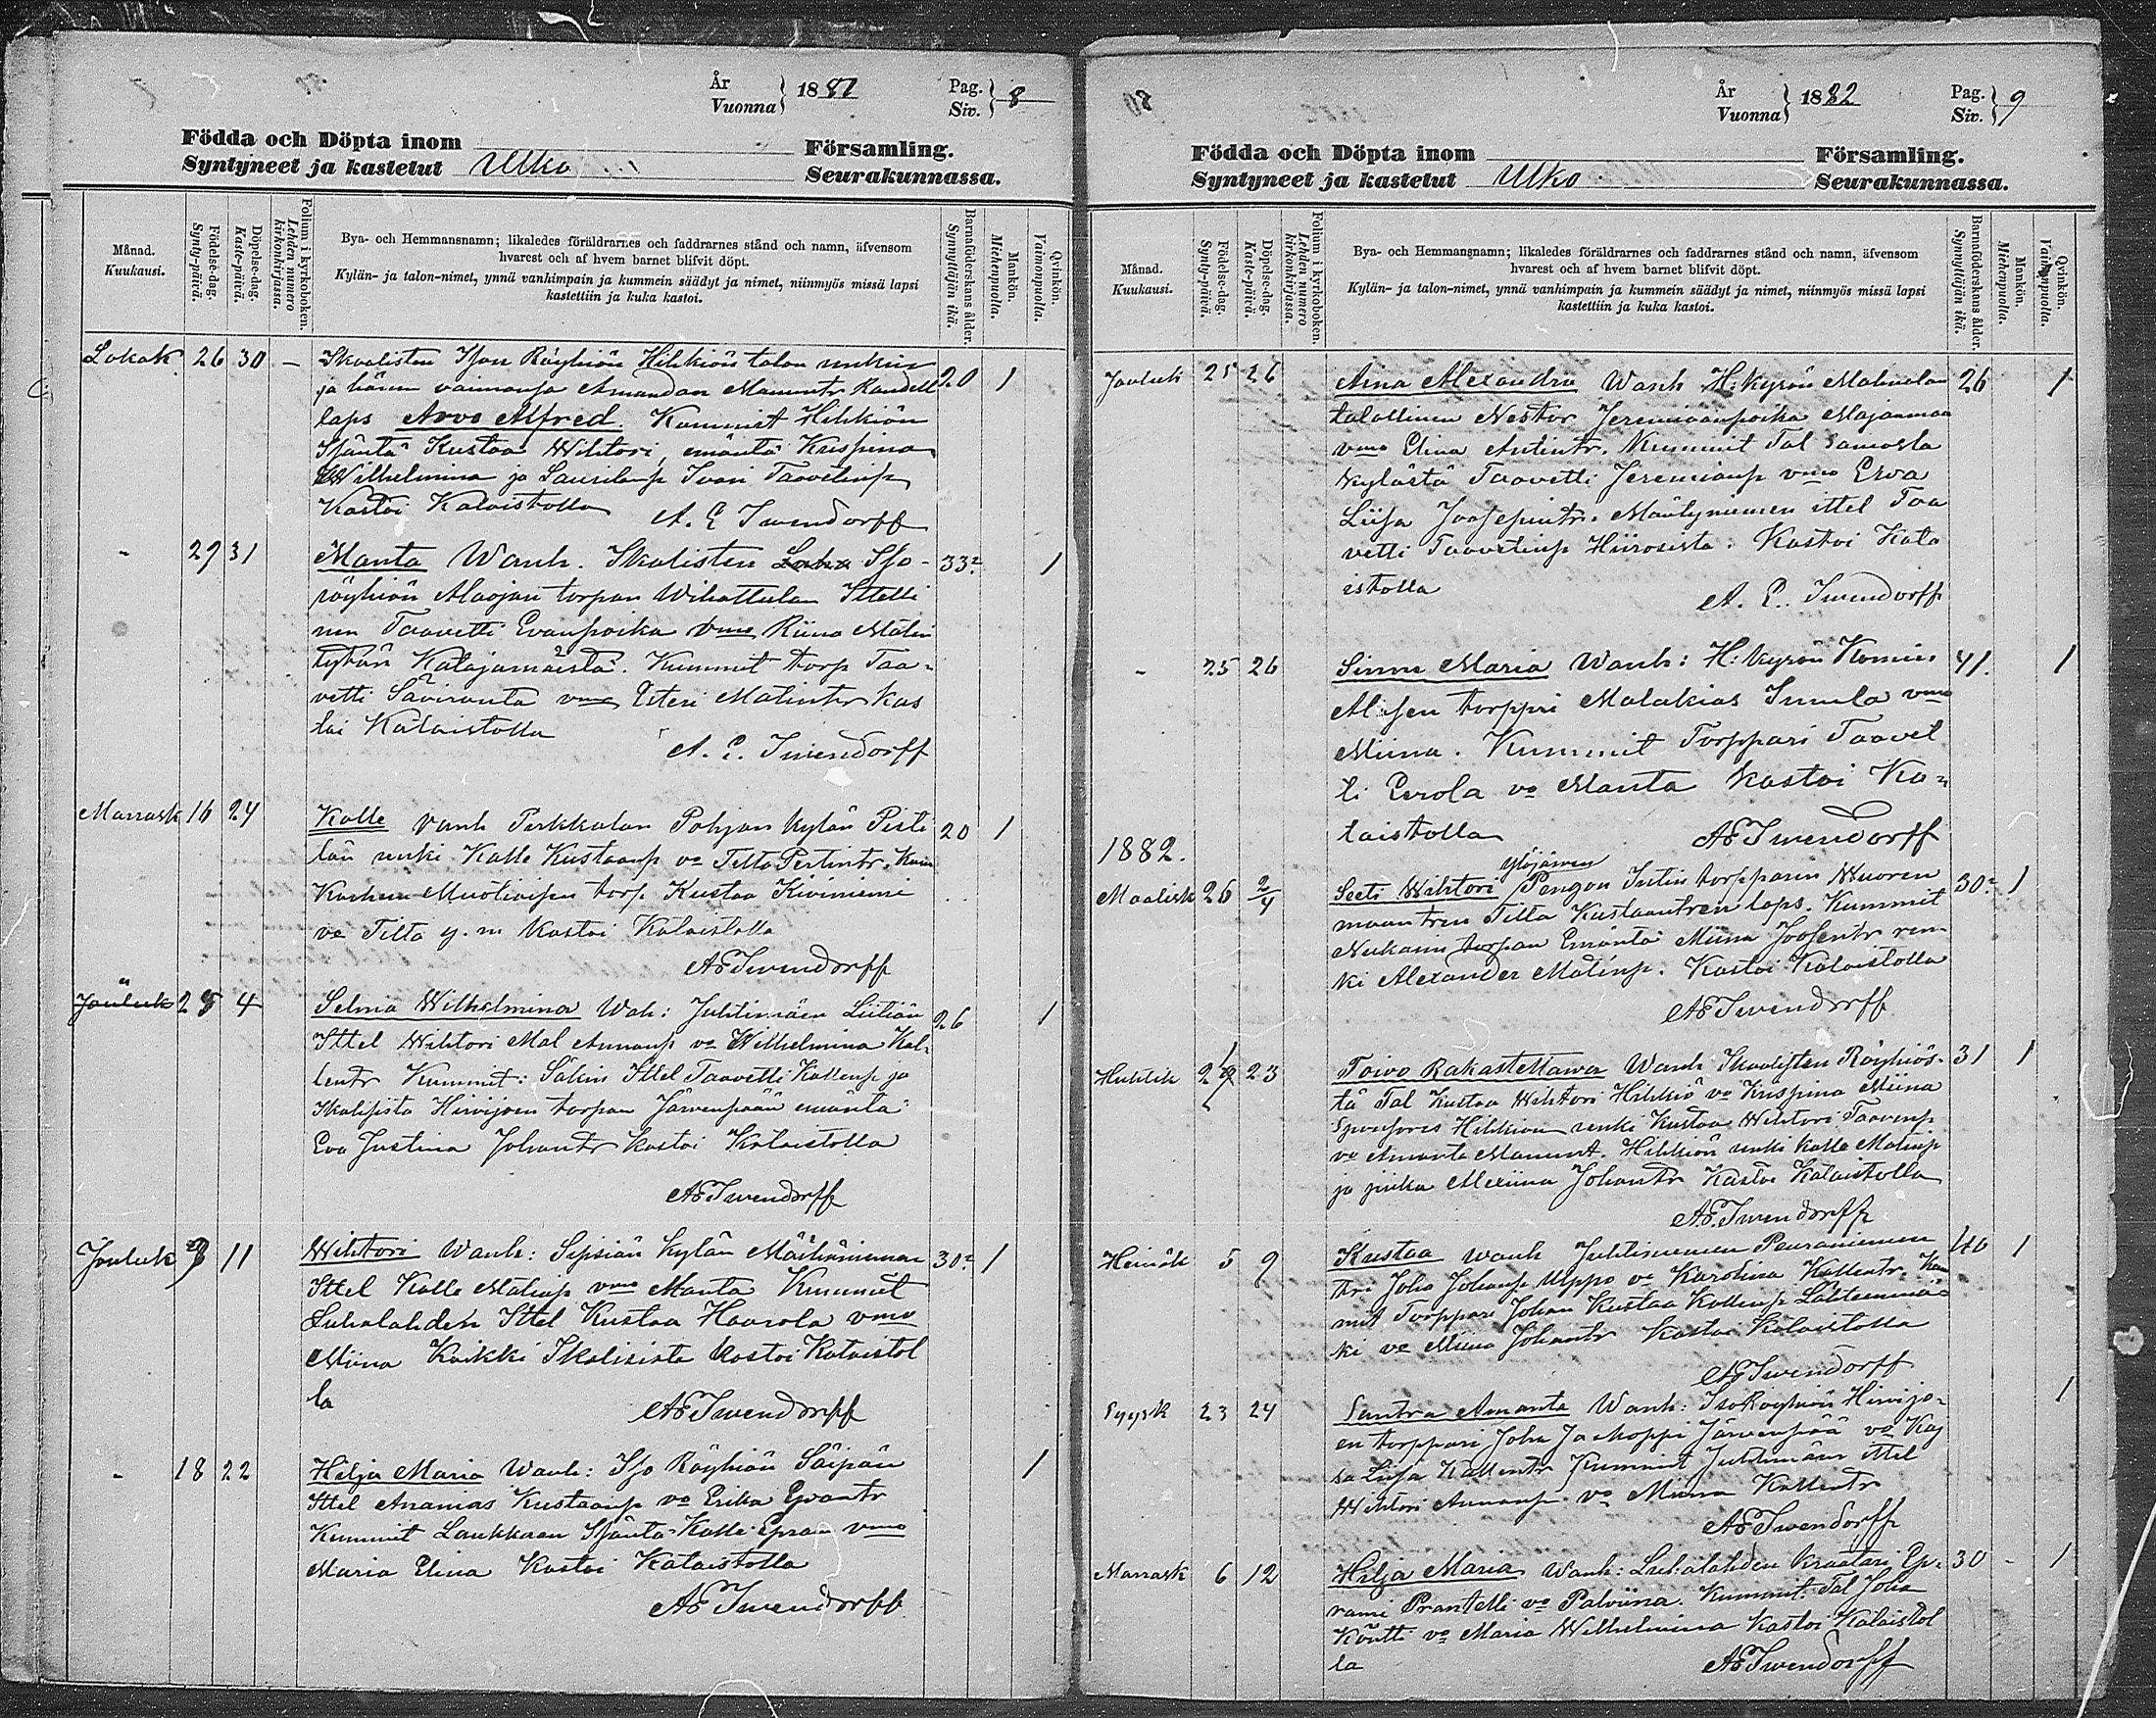 År
Vuonna } 1881
Pag.
Siv. } 8
Födda och Döpta inom Församling.
Syntyneet ja kastetut Ulko Seurakunnassa.
Månad.
Kuukausi.
Födelse-dag.
Synty-päivä.
Döpelse-dag.
Kaste-päivä.
Folium i kyrkoboken.
Lehden numero
kirkonkirjassa.
Bya- och Hemmansnamn; likaledes föräldrarnes och faddrarnes stånd och namn, äfvensom
hvarest och af hvem barnet blifvit döpt.
Kylän- ja talon-nimet, ynnä vanhimpain ja kummein säädyt ja nimet, niinmyös missä lapsi
kastettiin ja kuka kastoi.
Barnaföderskans ålder.
Synnyttäjän ikä.
Mankön.
Miehenpuolta.
Qvinkön.
Vaimonpuolta.
Lokak. 26 30 – Skaalisten Ison Röyhiön Hihkiön talon renkin
ja hänen vaimonsa Amandan Manuntr Randell 20 1
laps Arvo Alfred. Kummit Hihkiön
Isäntä Kustaa Wihtori, emäntä Krispina
Wilhelmina ja Taavetinp
Kastoi Kalaistolla A. E Iwendorff
- 29 31 Manta Wanh. Skalisten Iso- 33 1
röyhiön Alaojan torpan Wihattulan Ittelli
nen Taavetti Evanpoika vmo Riina Matin
tytär Katajamäistä. Kummit torp Taa-
vetti Saviranta vmo Eteri Matintr Kas
toi Kalaistolla
A. E. Iwendorff
Marrask 16 24 Kalle Vanh Parkkalan Pohjan kylän Pisti 20 1
län renki Kalle Kustaanp vo Tilta Pertintr. Kum
torp. Kustaa Kiviniemi
vo Tilta y. m Kastoi Kalaistolla
AE Iwendorff
Jouluk 28 4 Selma Wilhelmina Wah: Juhtimäen Liitiän 26 1
Ittel Wihtori Mal Annanp vo Wilhelmina Kal-
lentr Kummit: Säkin Ittel Taavetti Kallenp ja
Skalisista Hirvijoen torpan Järvenpään emäntä
Eva Justina Johantr kastoi Kalaistolla
AE Iwendorff
Jouluk 3 11 Wihtori Wanh: Sipsiän kylän Mäihäniemen 30 1
Ittel Kalle Matinp vmo Manta Kummit
Luhalahden Ittel Kustaa Haarola vmo
Miina Kaikki Skalisista Kastoi Kalaistol
la
AE Iwendorff
- 18 22 Hilja Maria Wanh: Iso Röyhiön Säipän 1
Ittel Ananias Kustaanp vo Erika Evantr
Kummit Laukkaan Isäntä Kalle Epran vmo
Maria Elina Kastoi Kalaistolla
AE Iwendorff
År
Vuonna } 1882
Pag.
Siv. } 9
Födda och Döpta inom Församling.
Syntyneet ja kastetut Ulko Seurakunnassa.
Månad.
Kuukausi.
Födelse-dag.
Synty-päivä.
Döpelse-dag.
Kaste-päivä.
Folium i kyrkoboken.
Lehden numero
kirkonkirjassa.
Bya- och Hemmangnamn; likaledes föräldrarnes och faddrarnes stånd och namn, äfvensom
hvarest och af hvem barnet blifvit döpt.
Kylän- ja talon-nimet, ynnä vanhimpain ja kummein säädyt ja nimet, niinmyös missä lapsi
kastettiin ja kuka kastoi.
Barnaföderskans ålder.
Synnyttäjän ikä.
Mankön.
Miehenpuolta.
Qvinkön.
Vaimonpuolta.
Jouluk 25 26 Aina Alexandra Wanh H:kyrön Mahnalan 26 1
talollinen Nestor Jeremiaanpoika Majanmaa
vmo Elina Antintr. Kummit Tal samasta
Kylästä Taavetti Jeremianp vmo Erva
Liisa Joosepintr. Mäntyniemen ittel Taa
vetti Taavetinp Hiirosista. Kastoi Kala
istolla
A. E. Iwendorff
- 25 26 Sinna Maria Wanh: H:kyrön Komin 41. 1
Alisen torppri Malakias Inmla vmo
Miina. Kummit Torppari Taavet
ti Eerola vo Manta Kastoi Ka-
laistolla AE Iwendorff
1882.
Ylöjärven
Maalisk 26 2/4 Seeti Wihtori Pengon Intin torpparin Wuoren 30 1
maan tren Tilta Kustaantren laps. Kummit
torpan Emäntä Miina Joosentr ren
ki Alexander Matinp. Kastoi Kalaistolla
AE Iwendorff
Huhtik 21 23 Toivo Rakastettawa Wanh Skaalisten Röyhiös- 31 1
tä Tal Kustaa Wihtori Hihkiö vo Krispina Miina
Hihkiön renki Kustaa Wihtori Taavenp
vo Amanta Manunt. Hihkiön renki Kalle Matinp
ja piika Alexiina Johantr Kastoi Kalaistolla
AE. Iwendorff
Heinäk 5 9 Kustaa wanh Juhtimäen Peuraniemen 40 1
thr. Joha Johanp Uppo vo Karolina Kallentr. Kum
mit Torppari Johan Kustaa Kallenp Lähteenmä-
ki vo Miina Johantr Kastoi Kalaistolla
AE Iwendorff
Syysk 23 24 Santra Amanta Wanh: Iso Röyhiön Hirvijo- 1
en torppari Joha Jamoppi Järvenpää vo Kaj
sa Liisa Kallentr Kummit Juhtimäen ittel
Wihtori Annanp. vo Miina Kallentr
AE Iwendorff
Marrask 6 12 Hilja Maria Wanh: Luhalahden kraatari Ep- 30 - 1
rami Prantelli vo Palviina. Kummit: Tal Joha
Köntti vo Maria Wilhelmina Kastoi Kalaistol
la AE Iwendorff